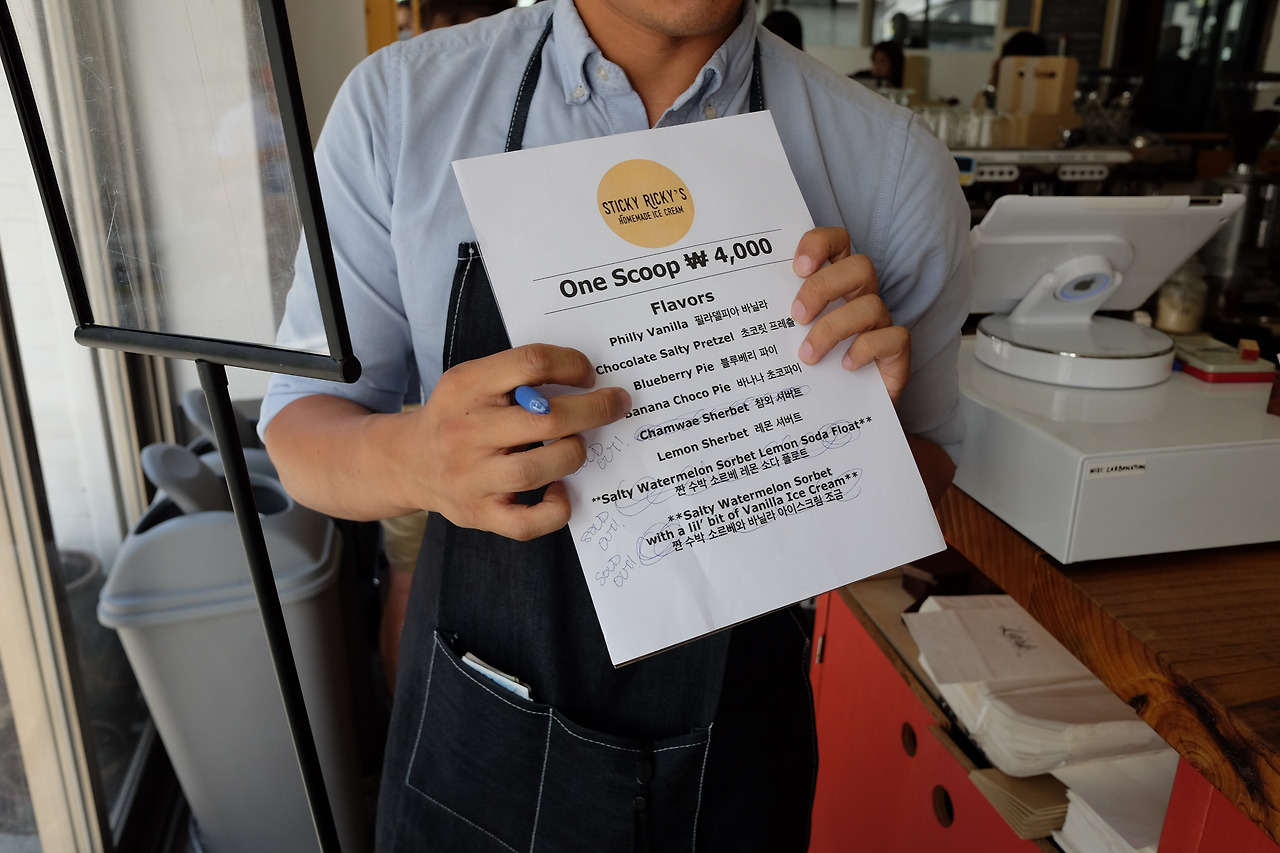 STICKY RICKY'S
HOMEMADE ICE CREAM
One Scoop ₩ 4,000
Flavors
Philly Vanilla 필라델피아 바닐라
Chocolate Salty Pretzel 초코릿 프레츨
Blueberry Pie 블루베리 파이
Banana Choco Pie 바나나 초코파이
Chamwae Sherbet 참외 셔버트
SOLD OUT!
Lemon Sherbet 레몬 셔버트
**Salty Watermelon Sorbet Lemon Soda Float**
짠 수박 소르베 레몬 소다 플로트
SOLD OUT!
**Salty Watermelon Sorbet
with a lil' bit of Vanilla Ice Cream**
짠 수박 소르베와 바닐라 아이스크림 조금
SOLD OUT!
WIFI: CARBONATION